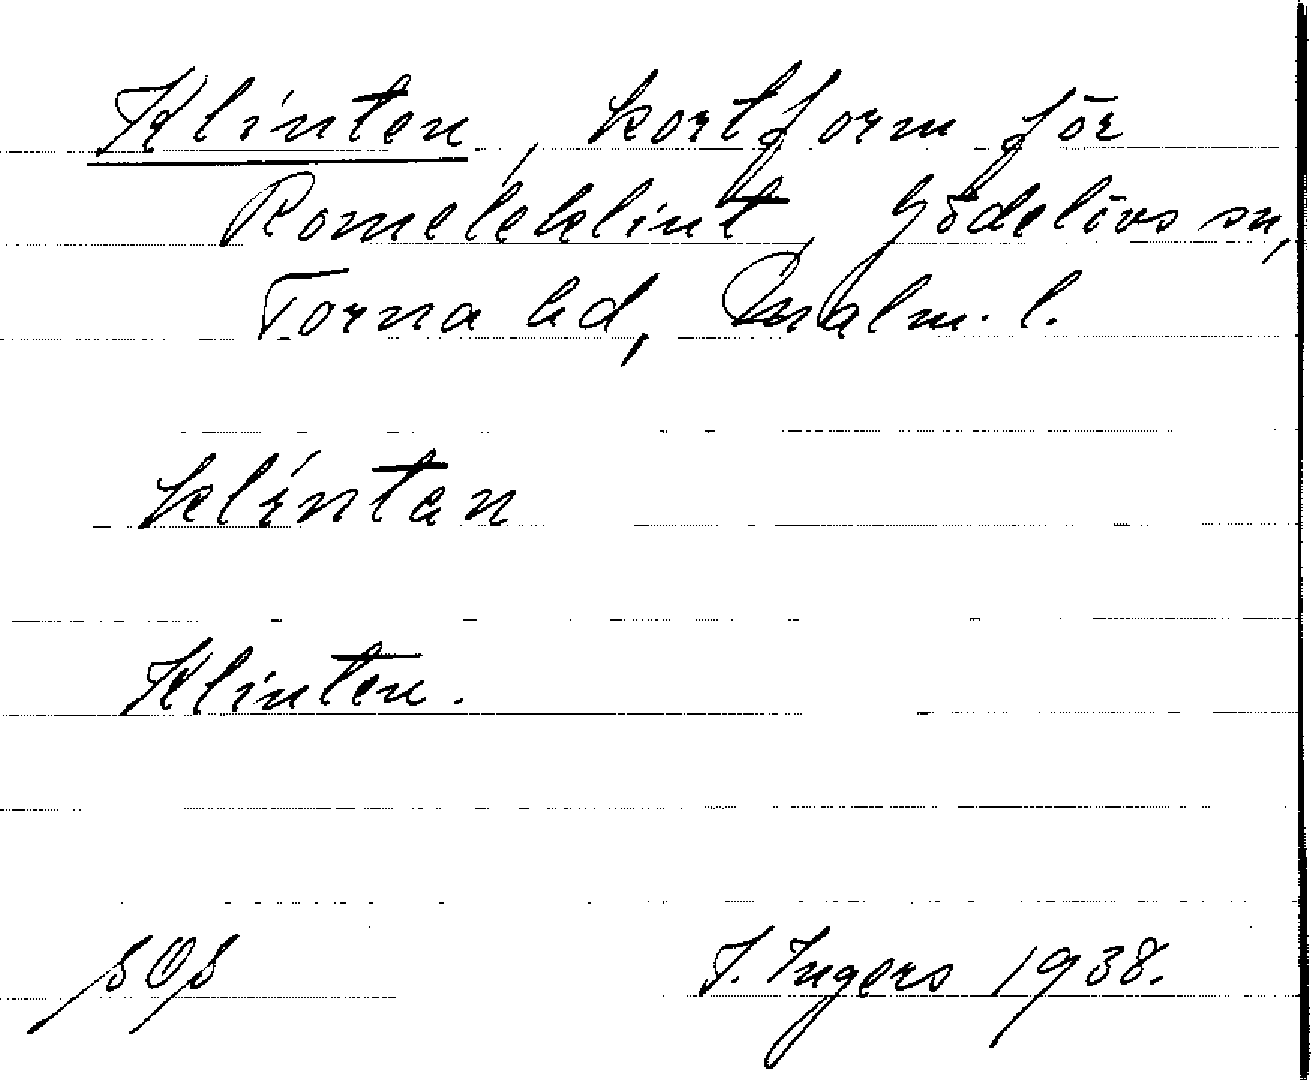 Klinten, kortform för
Romeleklint, Gödelövs sn,
Torna hd, Malm. l.
klintan
Klinten.
SOS
I. Ingers 1938.